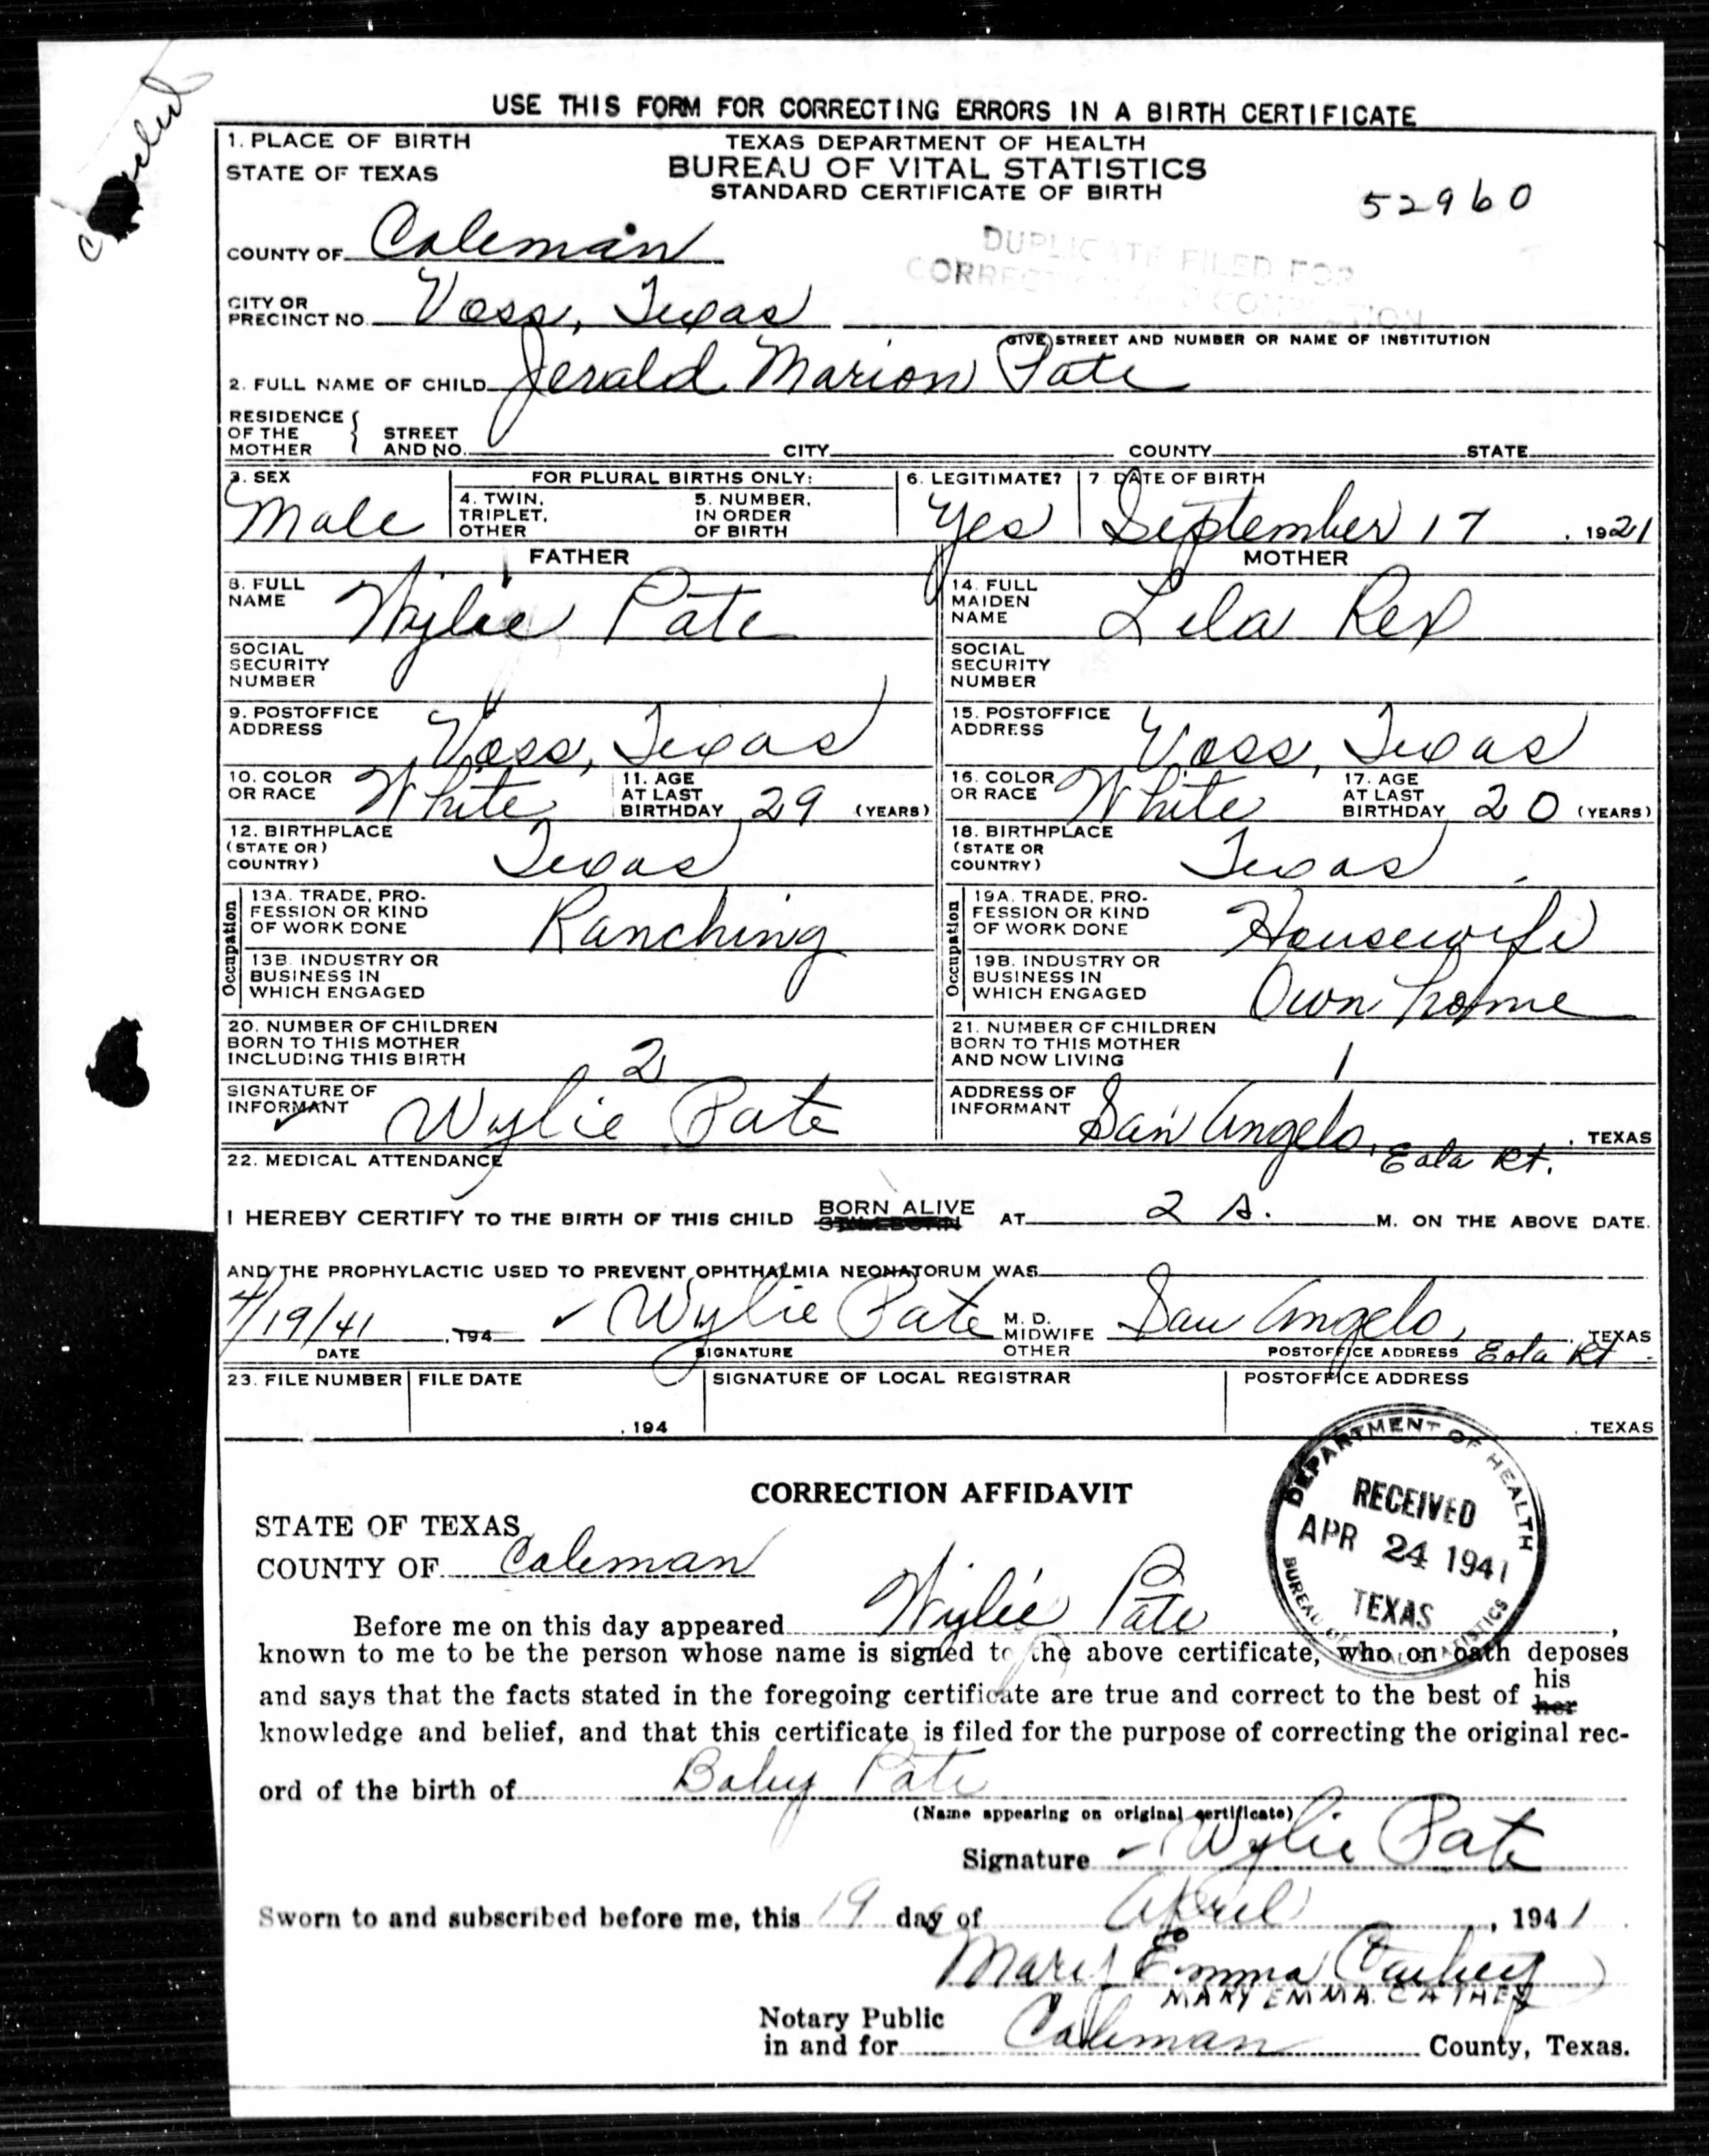 Canceled
USE THIS FORM FOR CORRECTING ERRORS IN A BIRTH CERTIFICATE
1. PLACE OF BIRTH
STATE OF TEXAS
TEXAS DEPARTMENT OF HEALTH
BUREAU OF VITAL STATISTICS
STANDARD CERTIFICATE OF BIRTH
52960
DUPLICATE FILED FOR
CORRECTION AND COMPLETION
COUNTY OF Coleman
CITY OR
PRECINCT NO. Voss, Texas
GIVE STREET AND NUMBER OR NAME OF INSTITUTION
2. FULL NAME OF CHILD Jerald Marion Pate
RESIDENCE
OF THE
MOTHER
STREET
AND NO. CITY COUNTY STATE
3. SEX
Male
FOR PLURAL BIRTHS ONLY:
4. TWIN,
TRIPLET,
OTHER
5. NUMBER,
IN ORDER
OF BIRTH
6. LEGITIMATE?
Yes
7 DATE OF BIRTH
September 17 , 1921
FATHER
8. FULL
NAME Wylie Pate
SOCIAL
SECURITY
NUMBER
9. POSTOFFICE
ADDRESS Voss, Texas
10. COLOR
OR RACE White
11. AGE
AT LAST
BIRTHDAY 29 (YEARS)
12. BIRTHPLACE
(STATE OR)
COUNTRY) Texas
Occupation
13A. TRADE, PRO-
FESSION OR KIND
OF WORK DONE Ranching
13B. INDUSTRY OR
BUSINESS IN
WHICH ENGAGED
20. NUMBER OF CHILDREN
BORN TO THIS MOTHER
INCLUDING THIS BIRTH 2
SIGNATURE OF
INFORMANT Wylie Pate
MOTHER
14. FULL
MAIDEN
NAME Lela Rex
SOCIAL
SECURITY
NUMBER
15. POSTOFFICE
ADDRESS Voss, Texas
16. COLOR
OR RACE White
17. AGE
AT LAST
BIRTHDAY 20 (YEARS)
18. BIRTHPLACE
(STATE OR
COUNTRY) Texas
Occupation
19A. TRADE, PRO-
FESSION OR KIND
OF WORK DONE Housewife
19B. INDUSTRY OR
BUSINESS IN
WHICH ENGAGED Own home
21. NUMBER OF CHILDREN
BORN TO THIS MOTHER
AND NOW LIVING 1
ADDRESS OF
INFORMANT San Angelo, Eola Rt. , TEXAS
22. MEDICAL ATTENDANCE
I HEREBY CERTIFY TO THE BIRTH OF THIS CHILD BORN ALIVE STILLBORN AT 2 A. M. ON THE ABOVE DATE.
AND THE PROPHYLACTIC USED TO PREVENT OPHTHALMIA NEONATORUM WAS
4/19/41 , 194 Wylie Pate
DATE
SIGNATURE
M. D.
MIDWIFE
OTHER
San Angelo, Eola Rt. TEXAS
POSTOFFICE ADDRESS
23. FILE NUMBER
FILE DATE
, 194
SIGNATURE OF LOCAL REGISTRAR
POSTOFFICE ADDRESS
, TEXAS
DEPARTMENT OF HEALTH
RECEIVED
APR 24 1941
TEXAS
BUREAU OF VITAL STATISTICS
CORRECTION AFFIDAVIT
STATE OF TEXAS
COUNTY OF Coleman
Before me on this day appeared Wylie Pate ,
known to me to be the person whose name is signed to the above certificate, who on oath deposes
and says that the facts stated in the foregoing certificate are true and correct to the best of his her
knowledge and belief, and that this certificate is filed for the purpose of correcting the original rec-
ord of the birth of Baby Pate
(Name appearing on original certificate)
Signature Wylie Pate
Sworn to and subscribed before me, this 19 day of April , 1941
Mary Emma Cathey
MARY EMMA CATHEY
Notary Public
in and for Coleman County, Texas.